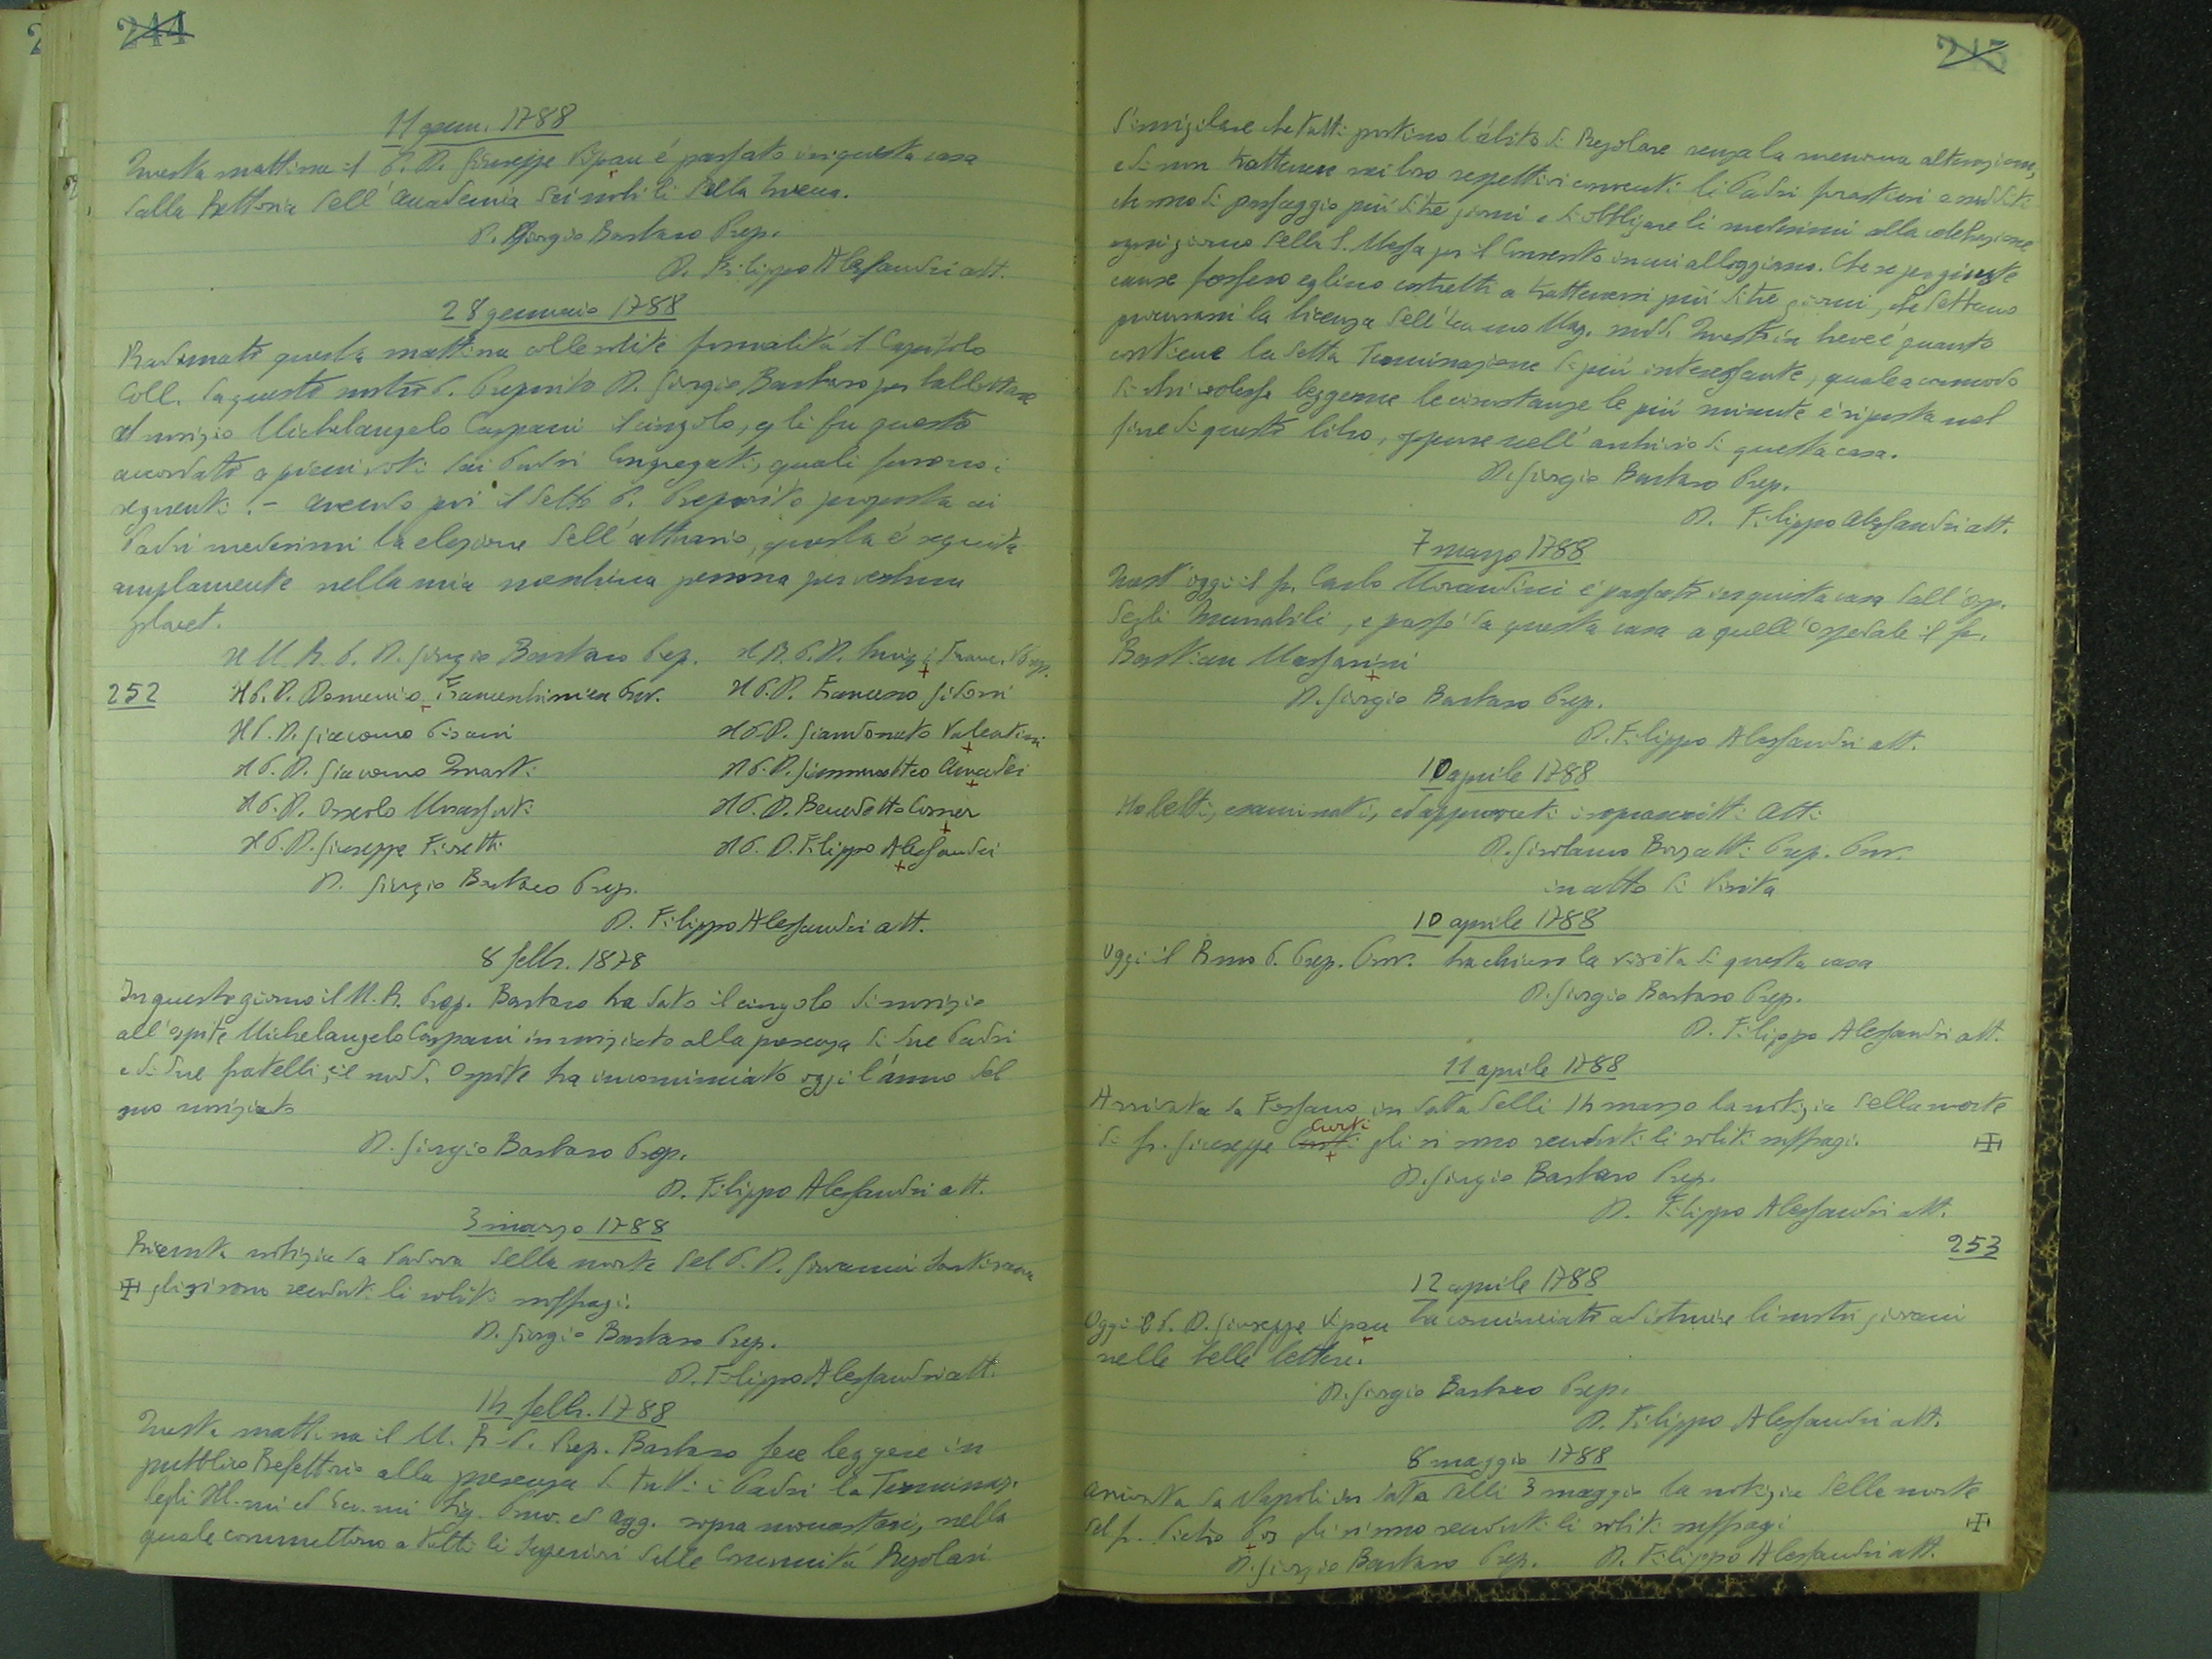 244
11 genn. 1788
Questa mattina il P. D. Giuseppe Vipau é passato in questa casa
dalla Rettoria dell'Accademia dei nobili della Zuecca.
D. Giorgio Barbaro Prep.
D. Filippo Alessandri att.
28 gennaio 1788
Radunato questa mattina colle solite formalitá il Capitolo
Coll. da questo nostro P. Preposito D. Giorgio Barbaro per ballottare
al novizio Michelangelo Caspani il cingolo, gli fu questo
accordato a pieni voti dai Padri Congregati, quali furono i
seguenti: - avendo poi il detto P. Preposito proposta ai
Padri medesimi la elezione dell'attuario, questa é seguita
amplamente nella mia meschina persona per vestrum
placet.
Il M. R. P. D. Giorgio Barbaro Prep. Il R. P. D. Luigi Franc. VPrep.
252
Il P. D. Domenico Franceschinica Prov. Il P. D. Francesco Gidoni
Il P. D. Giacomo Pisani Il P. D. Giandonato Valentini
Il P. D. Giacomo Quarti Il P. D. Gianmatteo Amadei
Il P. D. Orseolo Il P. D. Benedetto Corner
Il P. D. Giuseppe Fisetti Il P. D. Filippo Alessandri
D. Giorgio Barbaro Prep.
D. Filippo Alessandri att.
8 febb. 1878
In questo giorno il M. R. Prep. Barbaro ha dato il cingolo di novizio
all'ospite Michelangelo Caspani in noviziato alla presenza di due Padri
e di due fratelli, e il sudd. Ospite ha incominciato oggi l'anno del
suo noviziato
D. Giorgio Barbaro Prep.
D. Filippo Alessandri att.
3 marzo 1788
Ricevuta notizia da Padova della morte del P. D. Giovanni
gli si sono renduti li soliti suffragi.
D. Giorgio Barbaro Prep.
D. Filippo Alessandri att.
14 febb. 1788
Questa mattina il M. R. P. Prep. Barbaro fece leggere in
pubblico Refettorio alla presenza di tutti i Padri la Terminaz.
degli Ill.mi ed Ecc.mi Sig. Prov. ed Agg. sopra monasteri, nella
quale commettono a tutti li Superiori delle Comunitá Regolari
245
d'invigilare che tutti portino l'ábito di Regolare senza la menoma alterazione,
e di non trattenere nei loro respettivi conventi li Padri forastieri o sudditi
che sono di passaggio piú di tre giorni e di obbligare li medesimi alla celebrazione
ogni giorno della S. Messa per il Convento in cui alloggiano. Che se per giuste
cause fossero eglino costretti a trattenersi piú di tre giorni, che debbano
procurarsi la licenza dell'Ecc.mo Mag. sudd. Questo in breve é quanto
contiene la detta Terminazione di piú interessante, quale a commodo
di chi volesse leggerne le circostanze le piú minute é riposta nel
fine di questo libro, oppure nell'archivio di questa casa.
D. Giorgio Barbaro Prep.
D. Filippo Alessandri att.
7 marzo 1788
Quest'oggi il fr. Carlo Morandini é passato in questa casa dall'Osp.
degli Incurabili, e passó da questa casa a quell'ospedale il fr.
Bastian Massarini
D. Giorgio Barbaro Prep.
D. Filippo Alessandri att.
10 aprile 1788
Ho letti, esaminati, ed approvati i soprascritti Atti
D. Girolamo Prep. Prov.
in atto di Visita
10 aprile 1788
Oggi il R.mo P. Prep. Prov. ha chiuso la visita di questa casa
D. Giorgio Barbaro Prep.
D. Filippo Alessandri att.
11 aprile 1788
Arrivata da Fossano in data delli 14 marzo la notizia della morte
Curti
di fr. Giuseppe gli si sono renduti li soliti suffragi.
D. Giorgio Barbaro Prep.
D. Filippo Alessandri att.
253
12 aprile 1788
Oggi il P. D. Giuseppe Vipau ha cominciato ad istruire li nostri giovani
nelle belle lettere.
D. Giorgio Barbaro Prep.
D. Filippo Alessandri att.
8 maggio 1788
Arrivata da Napoli in data delli 3 maggio la notizia della morte
del fr. Pietro gli si sono renduti li soliti suffragi
D. Giorgio Barbaro Prep. D. Filippo Alessandri att.